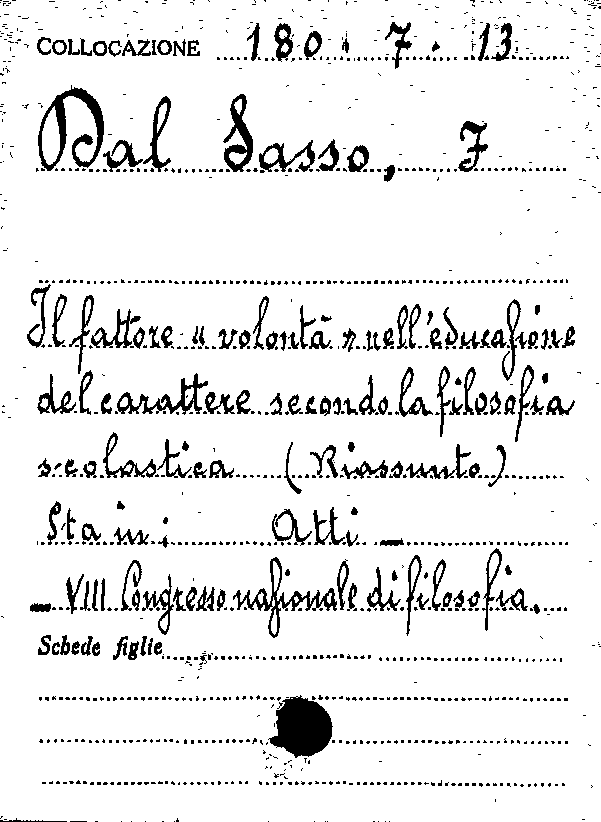 COLLOCAZIONE 180. 7. 13
Dal Sasso, F
Il fattore "volontà" nell'educazione
del carattere secondo la filosofia
scolastica (Riassunto)
Sta in: Atti _
_ VIII Congresso nazionale di filosofia.
Schede figlie